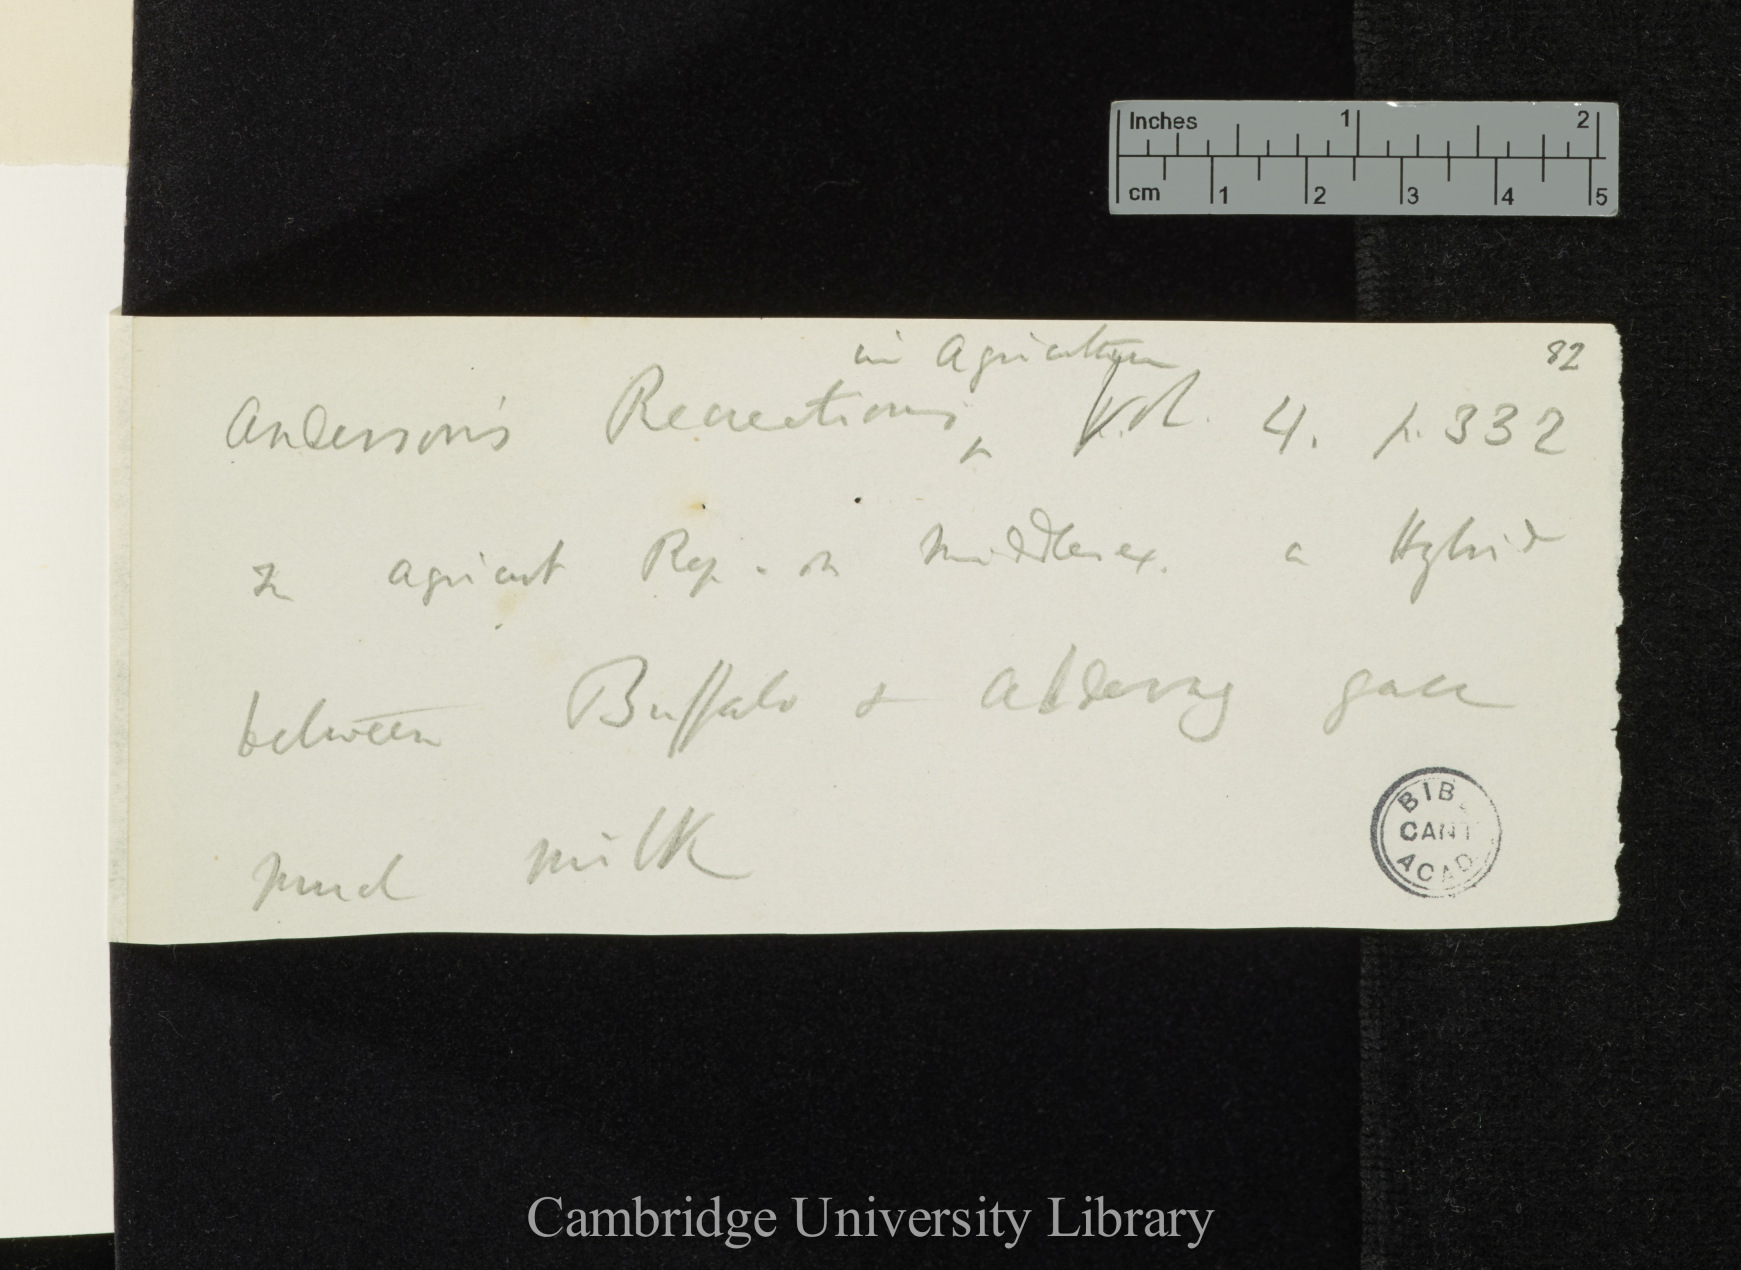 Inches 1 2
cm 1 2 3 4 5
82
in Agriculture
Anderson's Recreations ^ Vol. 4. p. 332
In Agricult Rep. on Middlesex. a Hybrid
between Buffalo & Alderney gave
much milk
BIB.
CANT
ACAD
Cambridge University Library